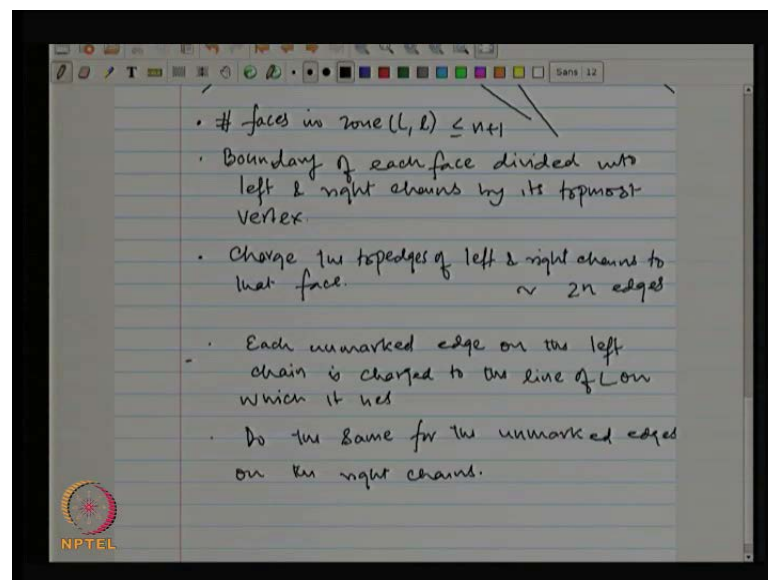 T Sans 12
• # faces in zone (L, l) ≤ n+1
• Boundary of each face divided into
left & right chains by its topmost
vertex.
• Charge the topedges of left & right chains to
that face. ~ 2n edges
• Each unmarked edge on the left
chain is charged to the line of L on
which it lies
• Do the same for the unmarked edges
on the right chains.
NPTEL